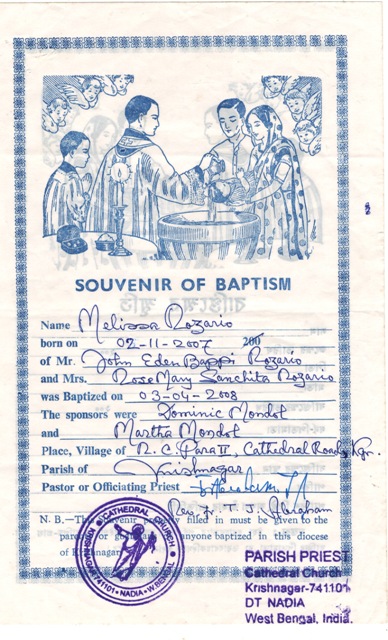 SOUVENIR OF BAPTISM
Name Melissa Rozario
born on 02-11-2007 200
of Mr. John Eden Bappi Rozario
and Mrs. RoseMary Sanchita Rozario
was Baptized on 03-04-2008
The sponsors were Dominic Mondol
and Martha Mondol
Place, Village of R. C. Para II, Cathedral Road, Kgr.
Parish of Krishnagar
Pastor or Officiating Priest
Rev. Fr. T. J. Abraham
N. B.—This souvenir properly filled in must be given to the
parents or guardians anyone baptized in this diocese
of Krishnagar
CATHEDRAL CHURCH
KRISHNAGAR-741101 • NADIA • W.BENGAL
PARISH PRIEST
Cathedral Church
Krishnagar-741101
DT NADIA
West Bengal, India.